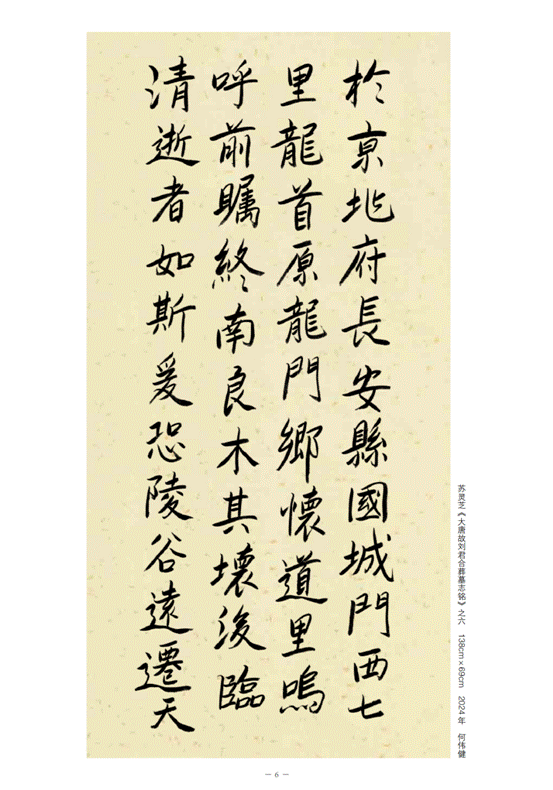 於京兆府長安縣國城門西七
里龍首原龍門鄉懷道里嗚
呼前矚終南良木其壞後臨
清逝者如斯爰恐陵谷遠遷天
苏灵芝《大唐故刘君合葬墓志铭》之六 138cm×69cm 2024年 何伟健
— 6 —